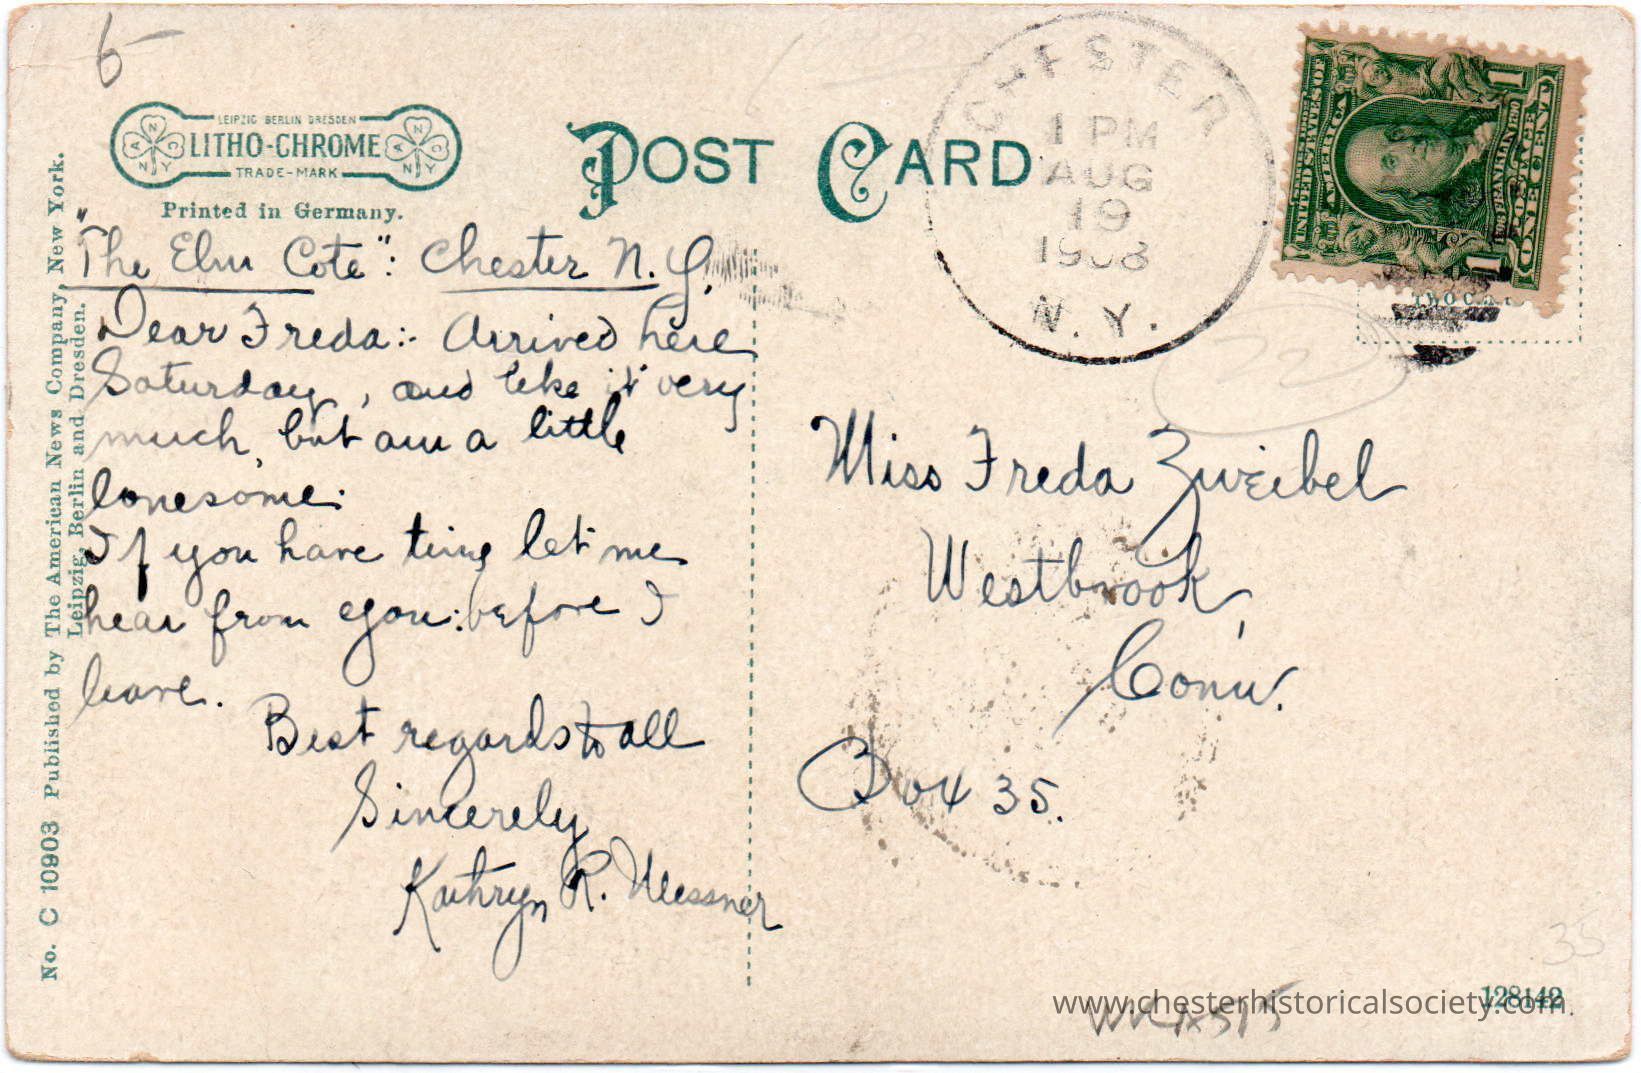 6
LEIPZIG BERLIN DRESDEN
LITHO-CHROME
TRADE-MARK
Printed in Germany.
POST CARD
CHESTER
1 PM
AUG
19
1908
N. Y.
UNITED STATES OF AMERICA
FRANKLIN
POSTAGE
ONE CENT
1 1
"The Elm Cote": Chester N. Y.
Dear Freda:- Arrived here
Saturday, and like it very
much, but am a little
lonesome.
If you have time let me
hear from you: before I
leave.
Best regards to all
Sincerely
Kathryn R. Messner
Miss Freda Zweibel
Westbrook,
Conn.
Box 35.
No. C 10903 Published by The American News Company, New York.
Leipzig, Berlin and Dresden.
35
128142
www.chesterhistoricalsociety.com